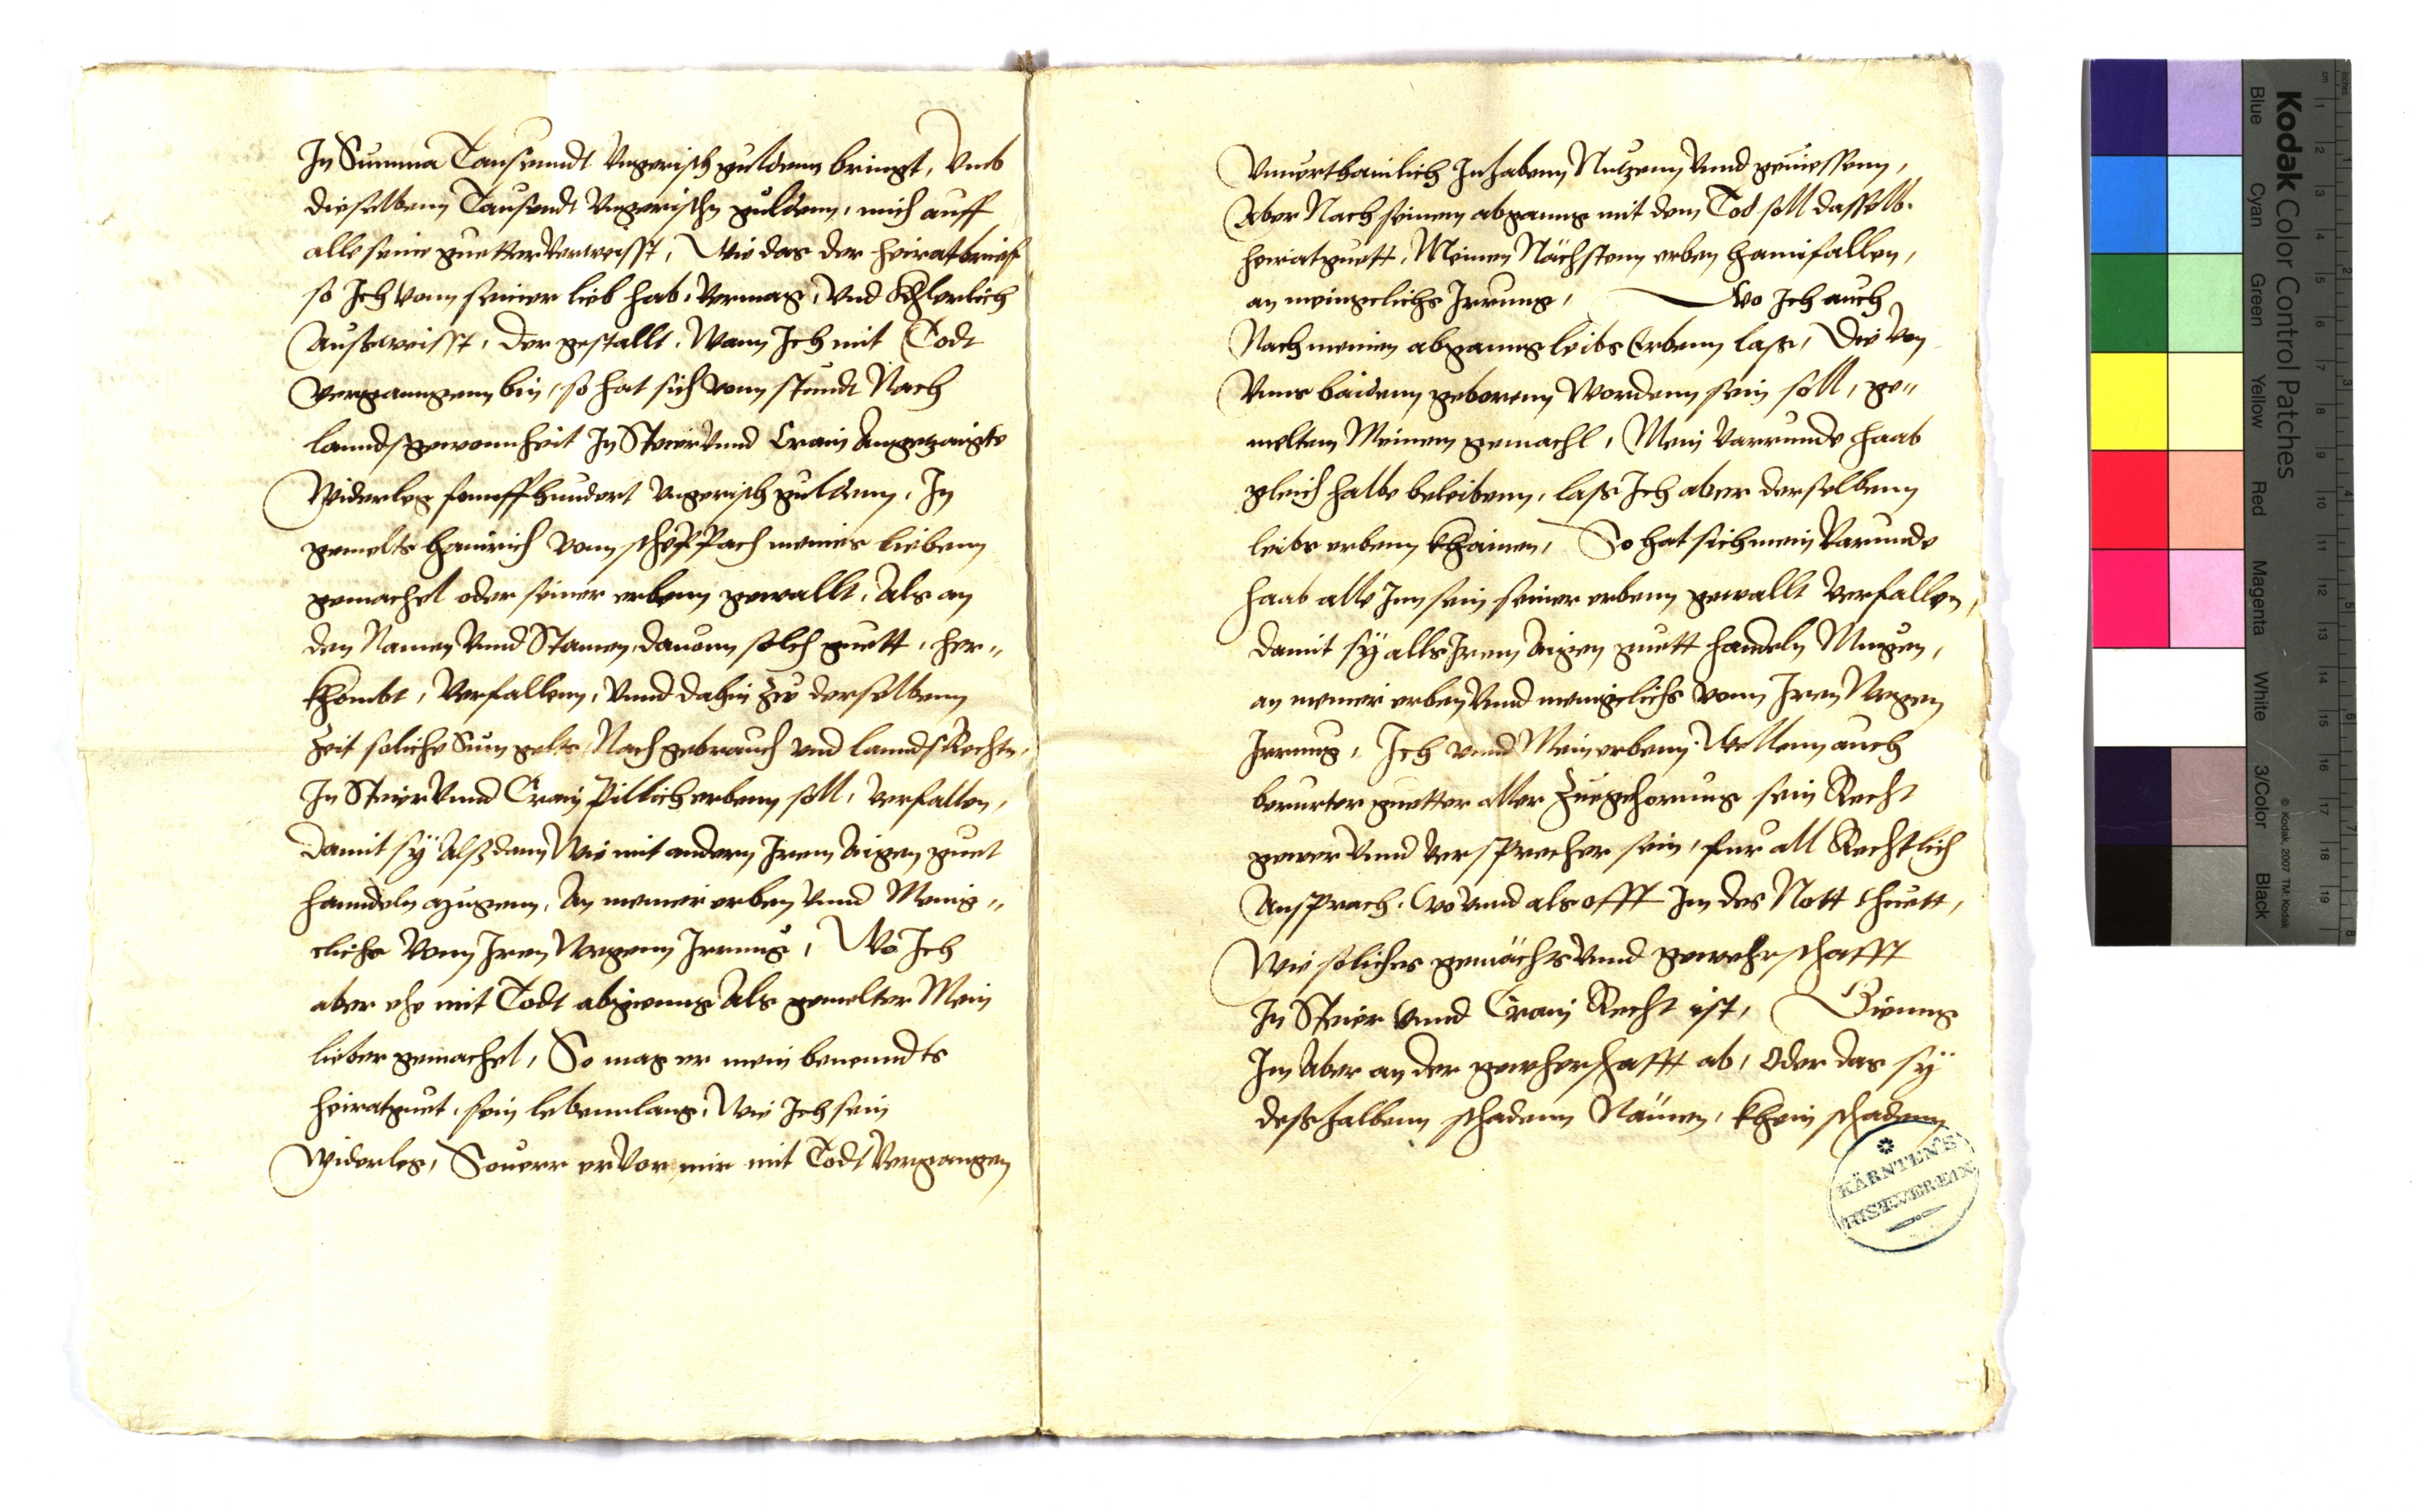 In Summa Tausenndt Vngerisch guldenn bringt, Vmb
dieselbenn Tausendt Vngerischn guldenn, mich auff
alle seine guetter Verweisst, Wie das der heiratbrief
so Ich vonn seiner lieb hab, Vermag, Vnd Khlerlich
Ausweisst, der gestallt, Wann Ich mit Todt
Verganngenn bin, so hat sich vonn stundt Nach
lanndsgewonnheit In Steier Vnnd Crain Angetzaigte
Widerleg funffhundert Vngerisch guldenn, In
gemelts Hainrich vonn meines liebenn
gemachel oder seiner erbenn gewallt, Als an
den Namen Vnnd Stamen, dauonn solch guett, her-,,
khombt, Verfallenn, Vnnd dahin Zu derselbenn
Zeit soliche Sum gelts, Nach gebrauch vnd lannds Rechtn,
In Steier Vnnd Crain Pillich erbenn soll, Verfallen,
damit sÿ Alßdann Wie mit andern Irem Aigen guet
hanndeln mugenn, An meiner erben Vnnd Menig,,
clichs Vonn Iren Wegenn Irrung, Wo Ich
aber ehe mit Todt abgienng Als gemelter Mein
lieber gemachel, So mag er mein benenndts
heiratguet, sein lebennlang, Wie Ich sein
Widerleg, Souerr er Vor mir mit Todt Vergangen
Vnuerthainlich Inhabenn Nutzenn Vnnd geniessenn,
Aber Nach seinem abganng mit dem Tod soll dasselb.
heiratguett, Meinen Nächstenn erben haimfallen,
an meingelichs Irrung, Wo Ich auch
Nach meinem abganng leibs Erbenn laß, Die Von
Vnns baidenn geborenn Wordenn sein soll, ge,,
meltem Meinem gemachl, Mein Varrunde haab
gleich halbe beleibenn, laß Ich aber derselbenn
leibs erbenn khainen, So hat sich mein Varunde
haab alle Inn sein seiner erbenn gewallt Verfallen,
damit sÿ alls Irem Aigen guett handeln Mugen,
an meiner erben Vnnd meingelichs vonn Iren Wegen
Irrung, Ich vnnd Mein erbenn Wellenn auch
berurter guetter aller Zuegehorung sein Recht
gewer Vnnd Versprecher sein, fur all Rechtlich
Ansprach, Wo vnnd als offt Im des Nott thuett,
Wie soliches gemächts Vnnd gewehrschafft
In Steier Vnnd Crain Recht ist, Gienng
Im Aber an der gewherschafft ab, Oder das sÿ
deßhalbenn schadenn Nämen, khein schadenn
KÄRNTEN'S
HIST. VEREIN
Kodak Color Control Patches
Blue Cyan Green Yellow Red Magenta White 3/Color Black
© Kodak, 2007 TM: Kodak